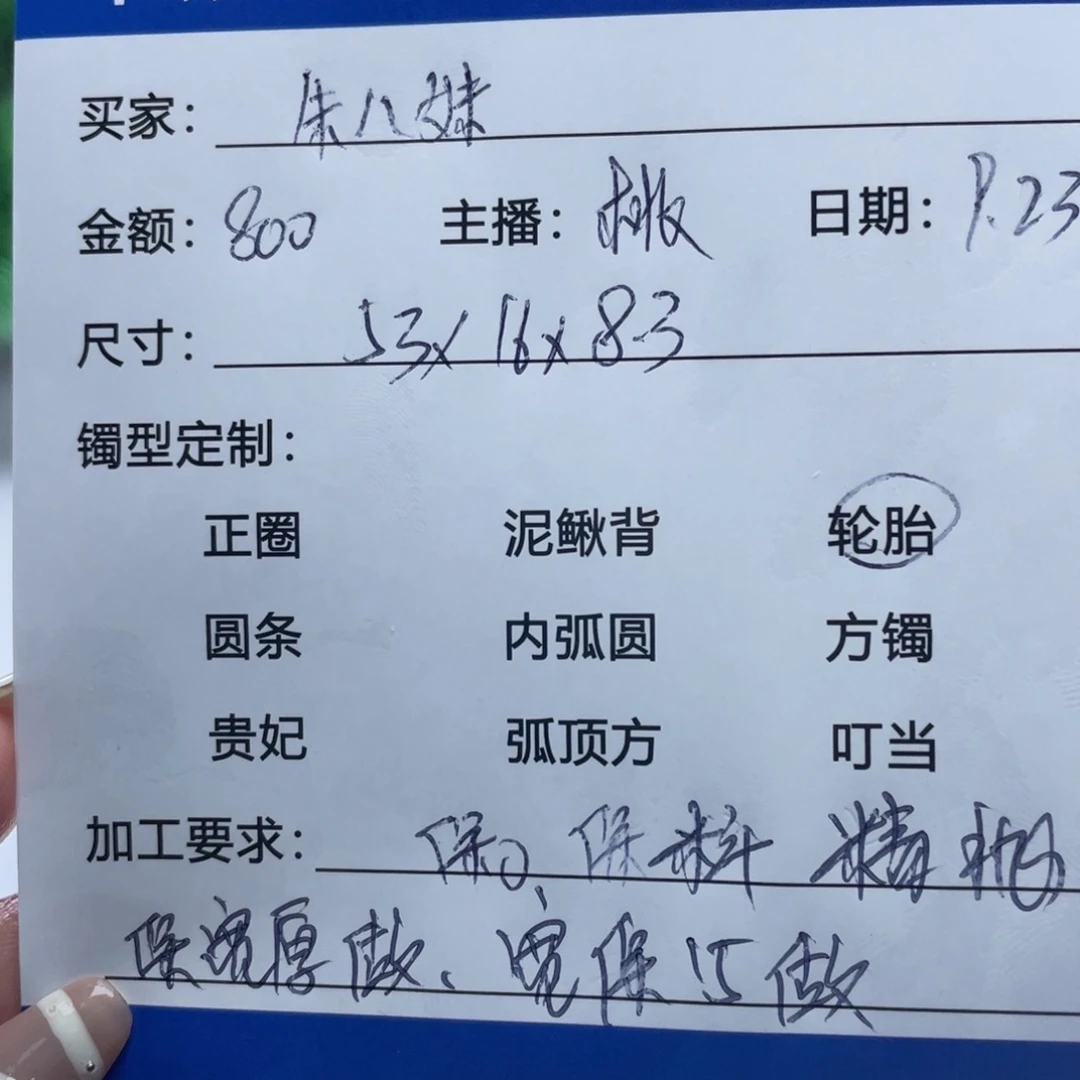 买家: 朱八妹
金额: 800 主播: 桃 日期: 9.23
尺寸: 53x16x8.3
镯型定制:
正圈 泥鳅背 轮胎
圆条 内弧圆 方镯
贵妃 弧顶方 叮当
加工要求: 保口、保料 精抛
保宽厚做、宽保15做